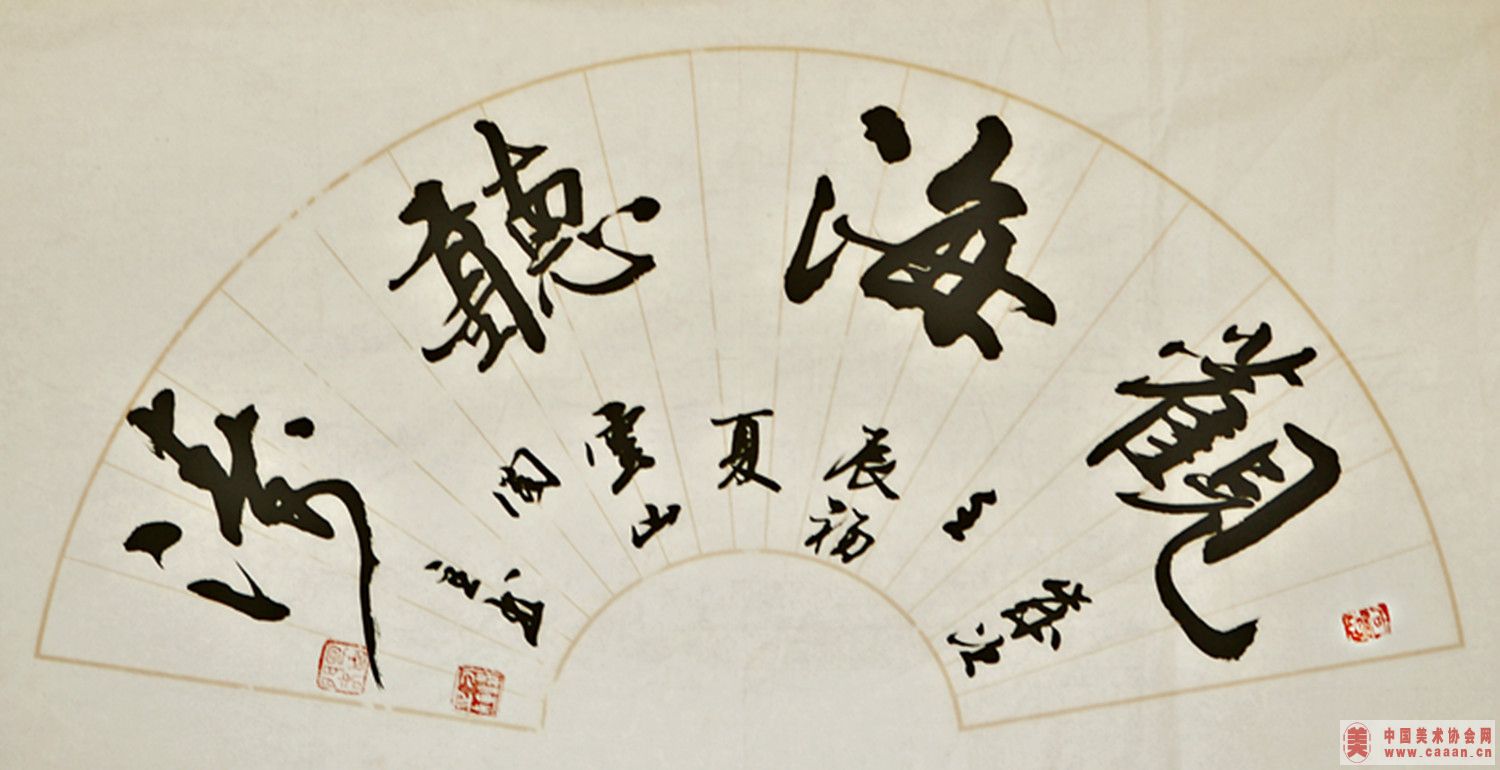 觀海聽濤
歲次
壬
辰福
夏
雲山
中国美术协会网
www.caaan.cn